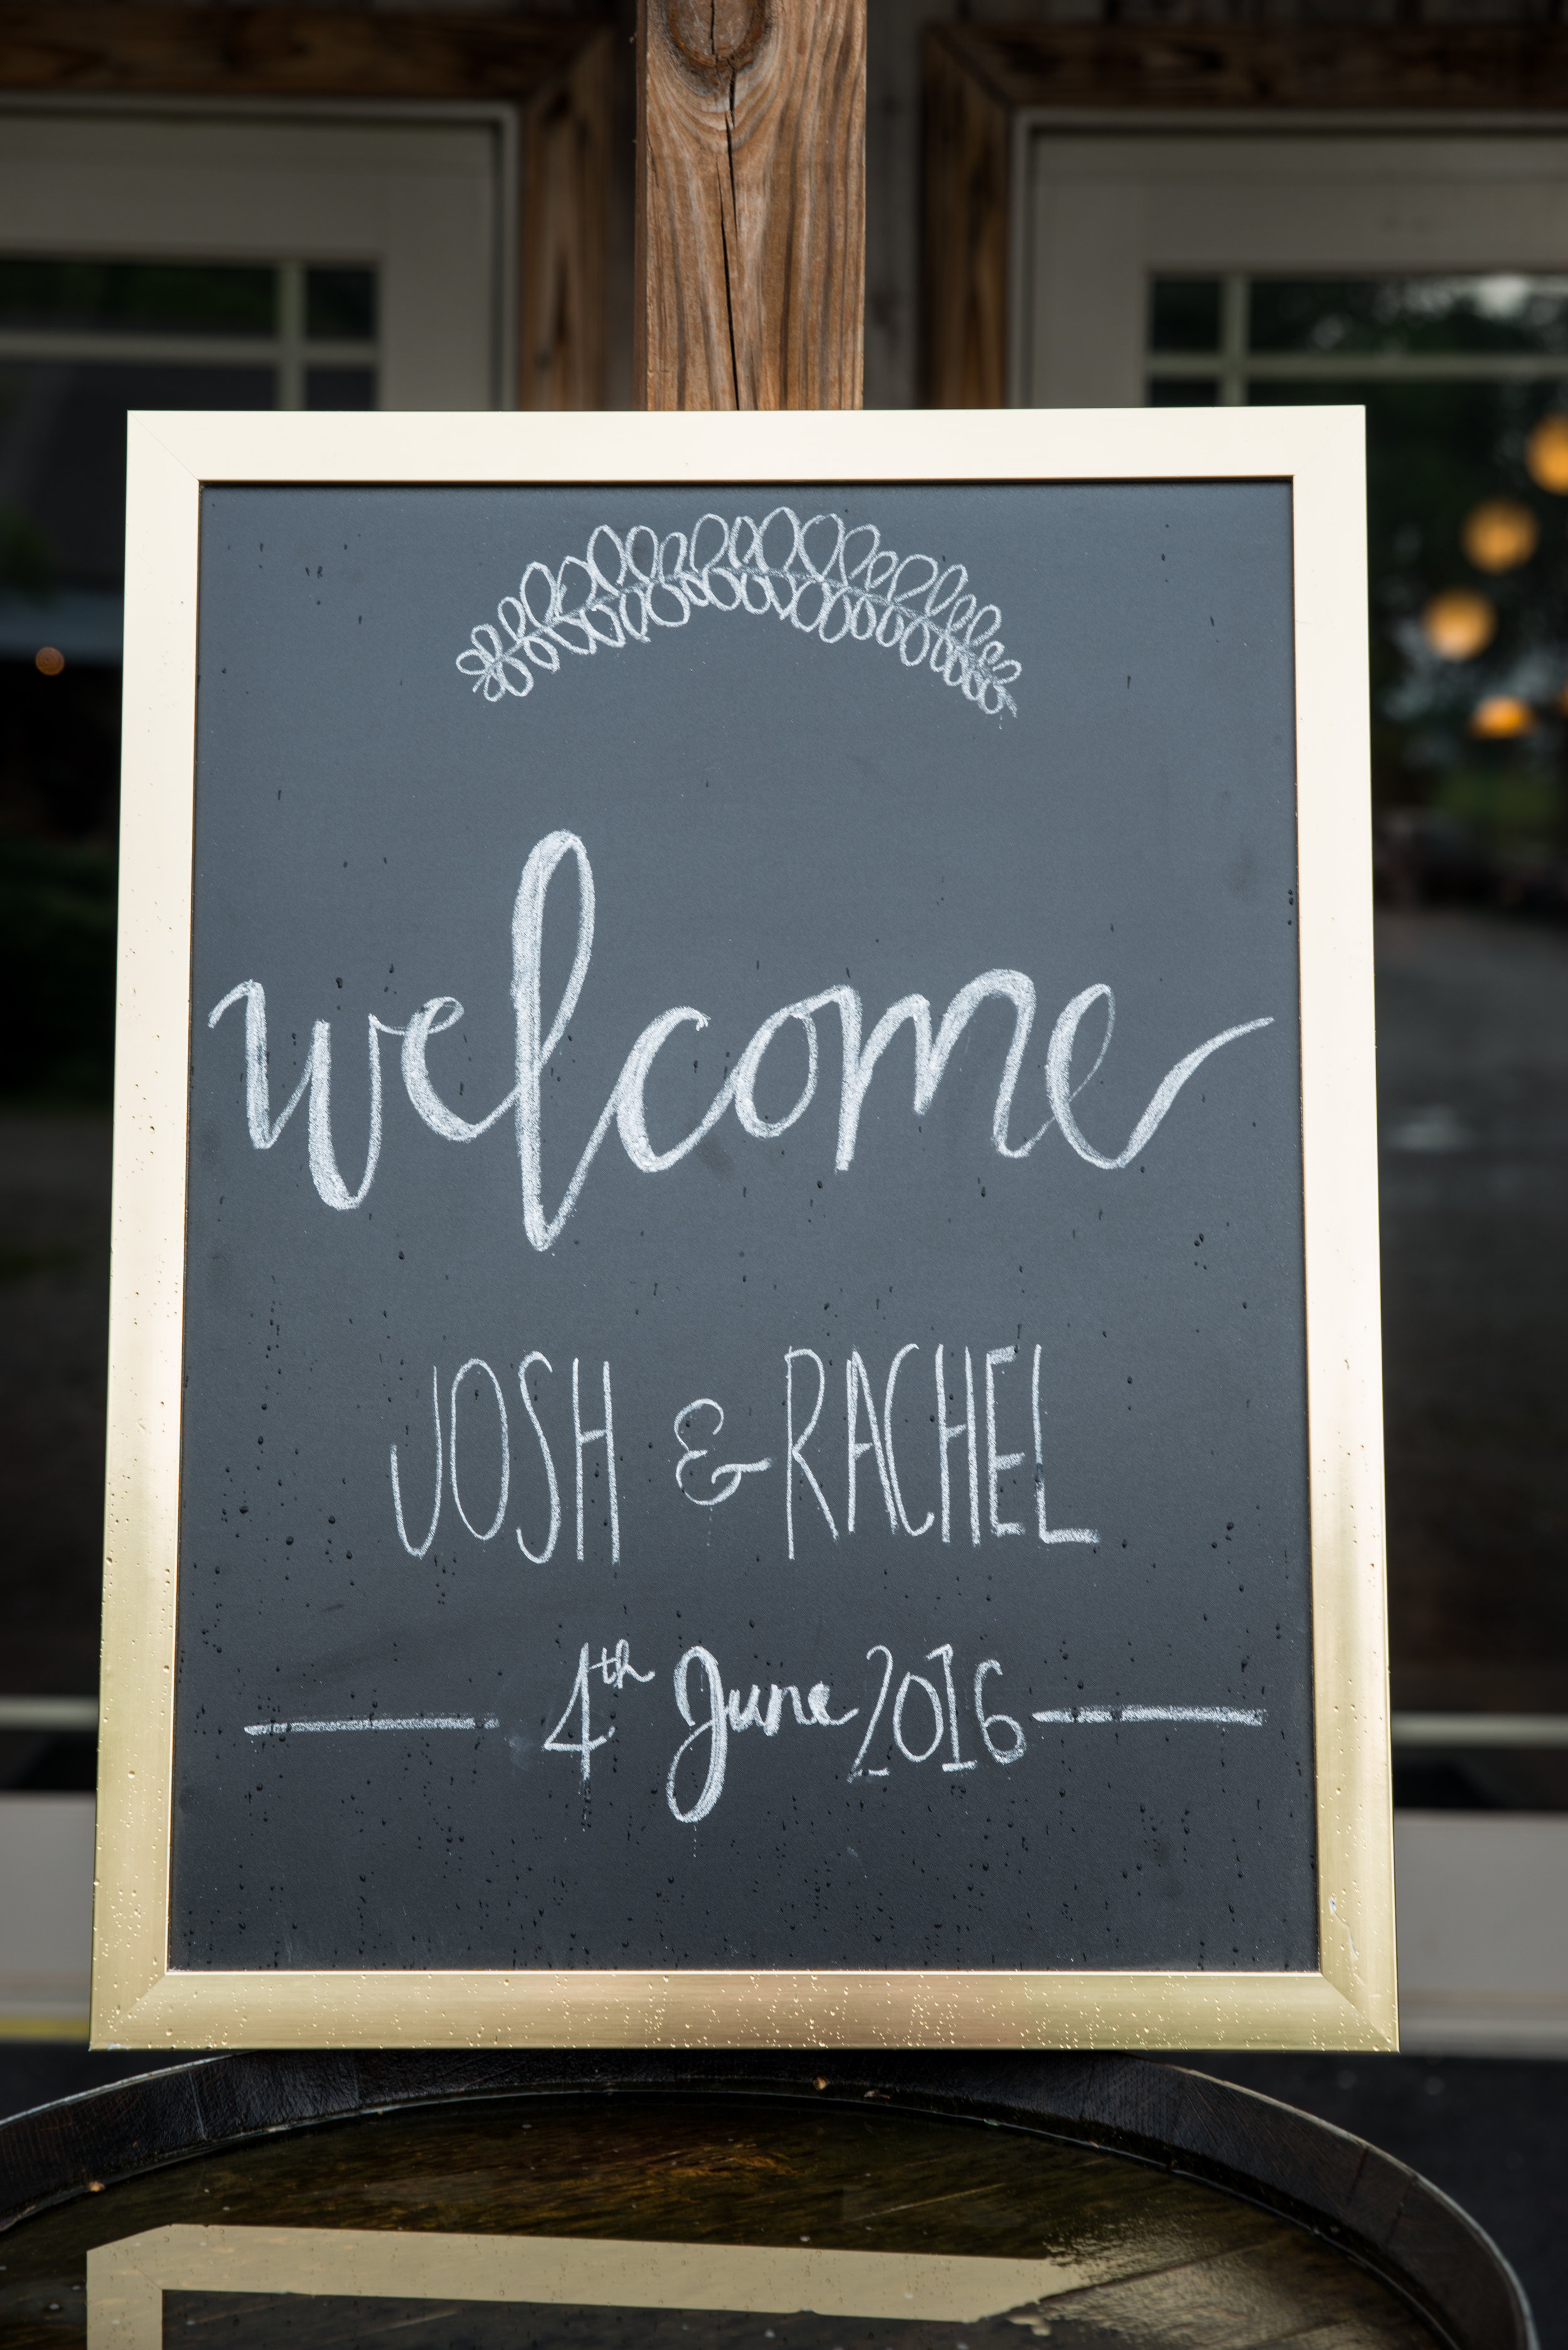 welcome
JOSH & RACHEL
4th June 2016